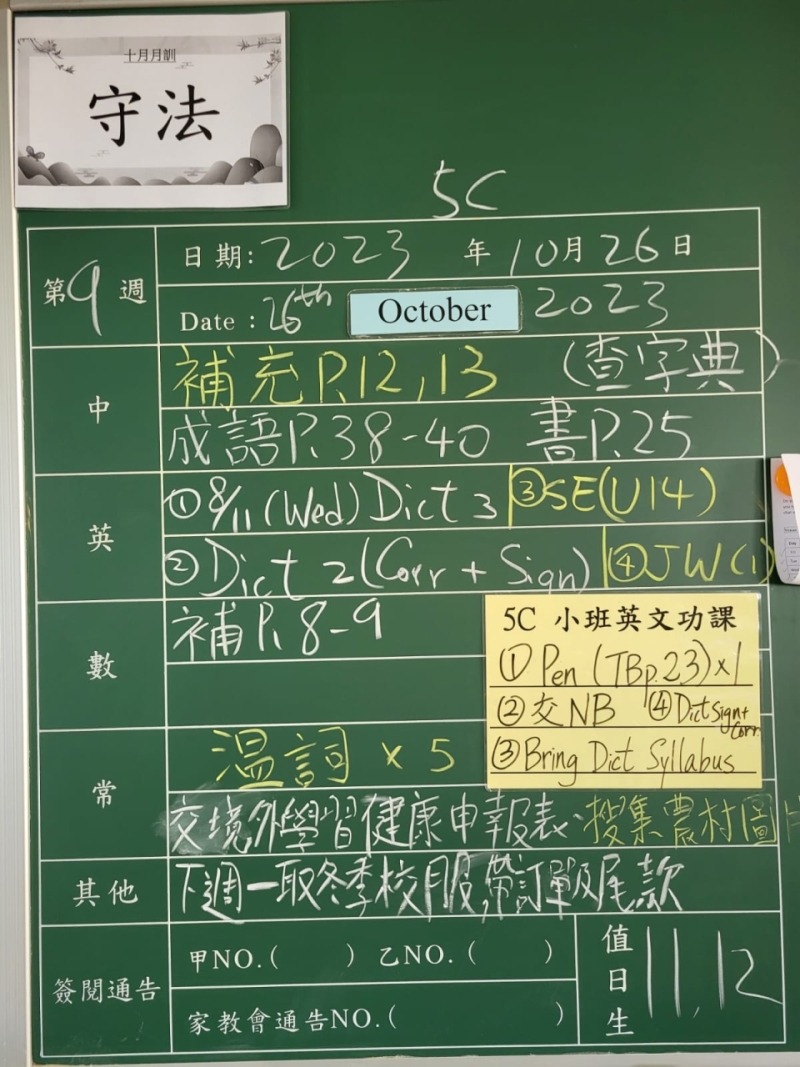 十月月訓
守法
5C
第9週
日期:2023 年10月26日
Date : 26th October 2023
中
補充P.12,13 (查字典)
成語P.38-40 書P.25
英
①8/11(Wed) Dict 3 ③SE(U14)
②Dict 2(Corr + Sign) ④JW(1)
數
補P.8-9
5C 小班英文功課
①Pen (TBp.23)×1
②交NB ④Dict Sign+Corr.
③Bring Dict Syllabus
常
溫詞 × 5
交境外學習健康申報表、搜集農村圖片
其他
下週一取冬季校服,帶訂單及尾款
簽閱通告
甲NO.( ) 乙NO.( )
家教會通告NO.( )
值日生
11,12